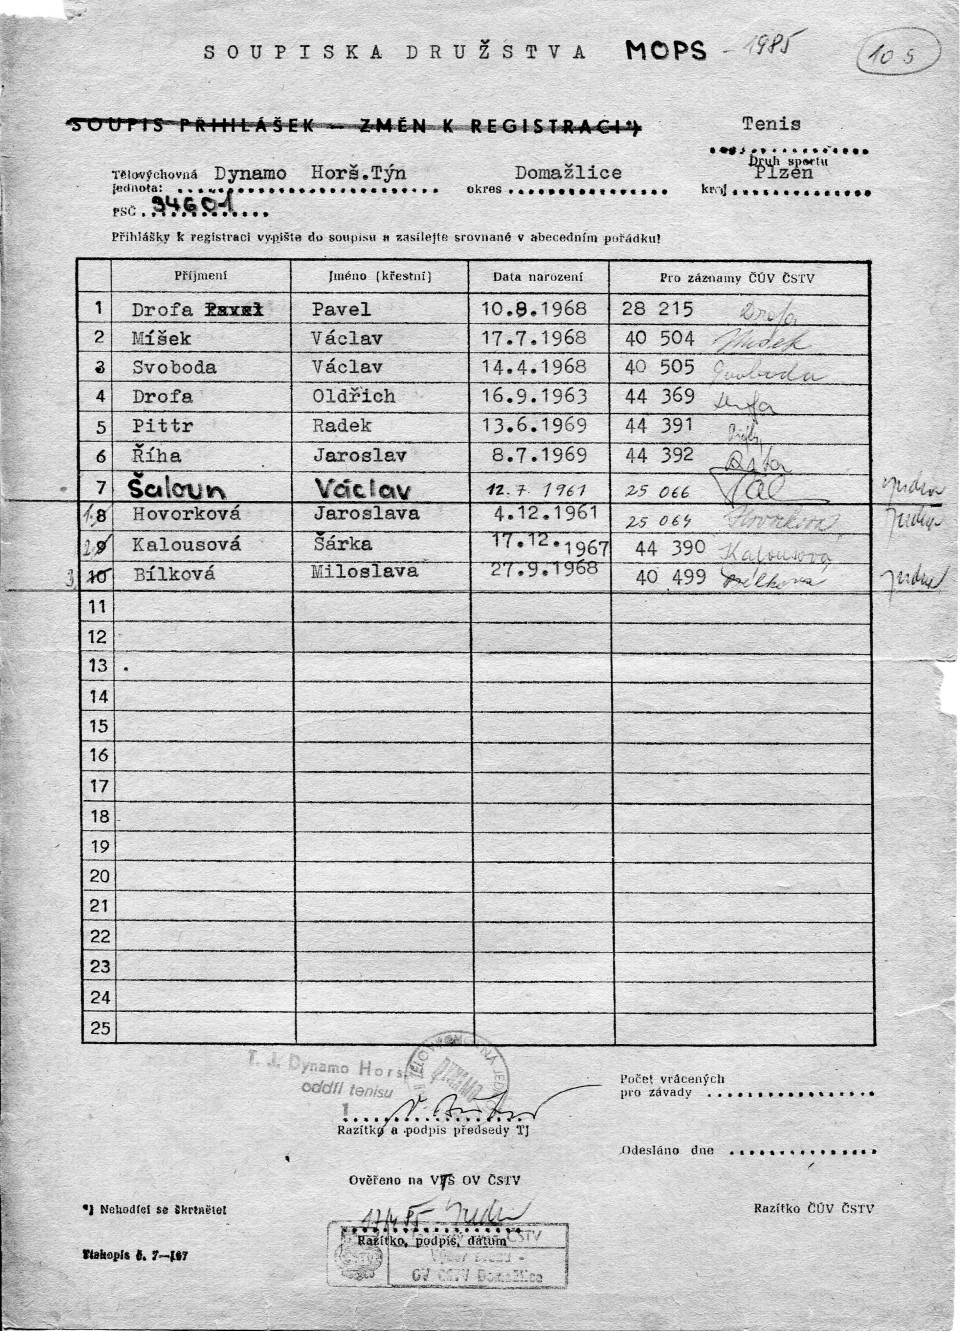 SOUPISKA DRUŽSTVA MOPS - 1985
105
SOUPIS PŘIHLÁŠEK — ZMĚN K REGISTRACI *)
Tenis
Druh sportu
Tělovýchovná jednota: Dynamo Horš.Týn okres Domažlice kraj Plzeň
PSČ 34601
Přihlášky k registraci vypište do soupisu a zasílejte srovnané v abecedním pořádku!
Příjmení Jméno (křestní) Data narození Pro záznamy ČÚV ČSTV
1 Drofa Pavel Pavel 10.8.1968 28 215 Drofa
2 Míšek Václav 17.7.1968 40 504 Míšek
3 Svoboda Václav 14.4.1968 40 505 Svoboda
4 Drofa Oldřich 16.9.1963 44 369
5 Pittr Radek 13.6.1969 44 391
6 Říha Jaroslav 8.7.1969 44 392
7 Šaloun Václav 12.7.1961 25 066
1. 8 Hovorková Jaroslava 4.12.1961 25 064 Hovorková
2. 9 Kalousová Šárka 17.12.1967 44 390 Kalousová
3. 10 Bílková Miloslava 27.9.1968 40 499 Bílková
11
12
13
14
15
16
17
18
19
20
21
22
23
24
25
T. J. Dynamo Horš.
oddíl tenisu
1
DYNAMO
Razítko a podpis předsedy TJ
Počet vrácených
pro závady
Odesláno dne
Ověřeno na VTS OV ČSTV
17/4 85
Razítko, podpis, datum
ČSTV
OV ČSTV Domažlice
*) Nehodící se škrtněte!
Razítko ČÚV ČSTV
Tiskopis č. 7—167